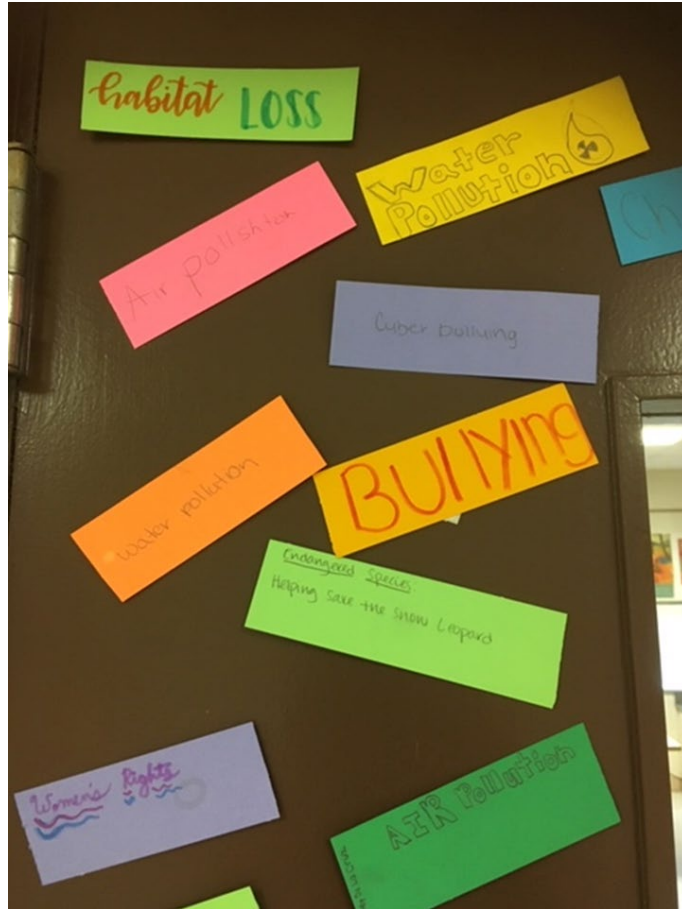 habitat LOSS
Water
Pollution
Air pollshton
Ch
Cyber bullying
water pollution
BUllYing
Endangered Species
Helping save the snow Leopard
Women's Rights
AIR Pollution